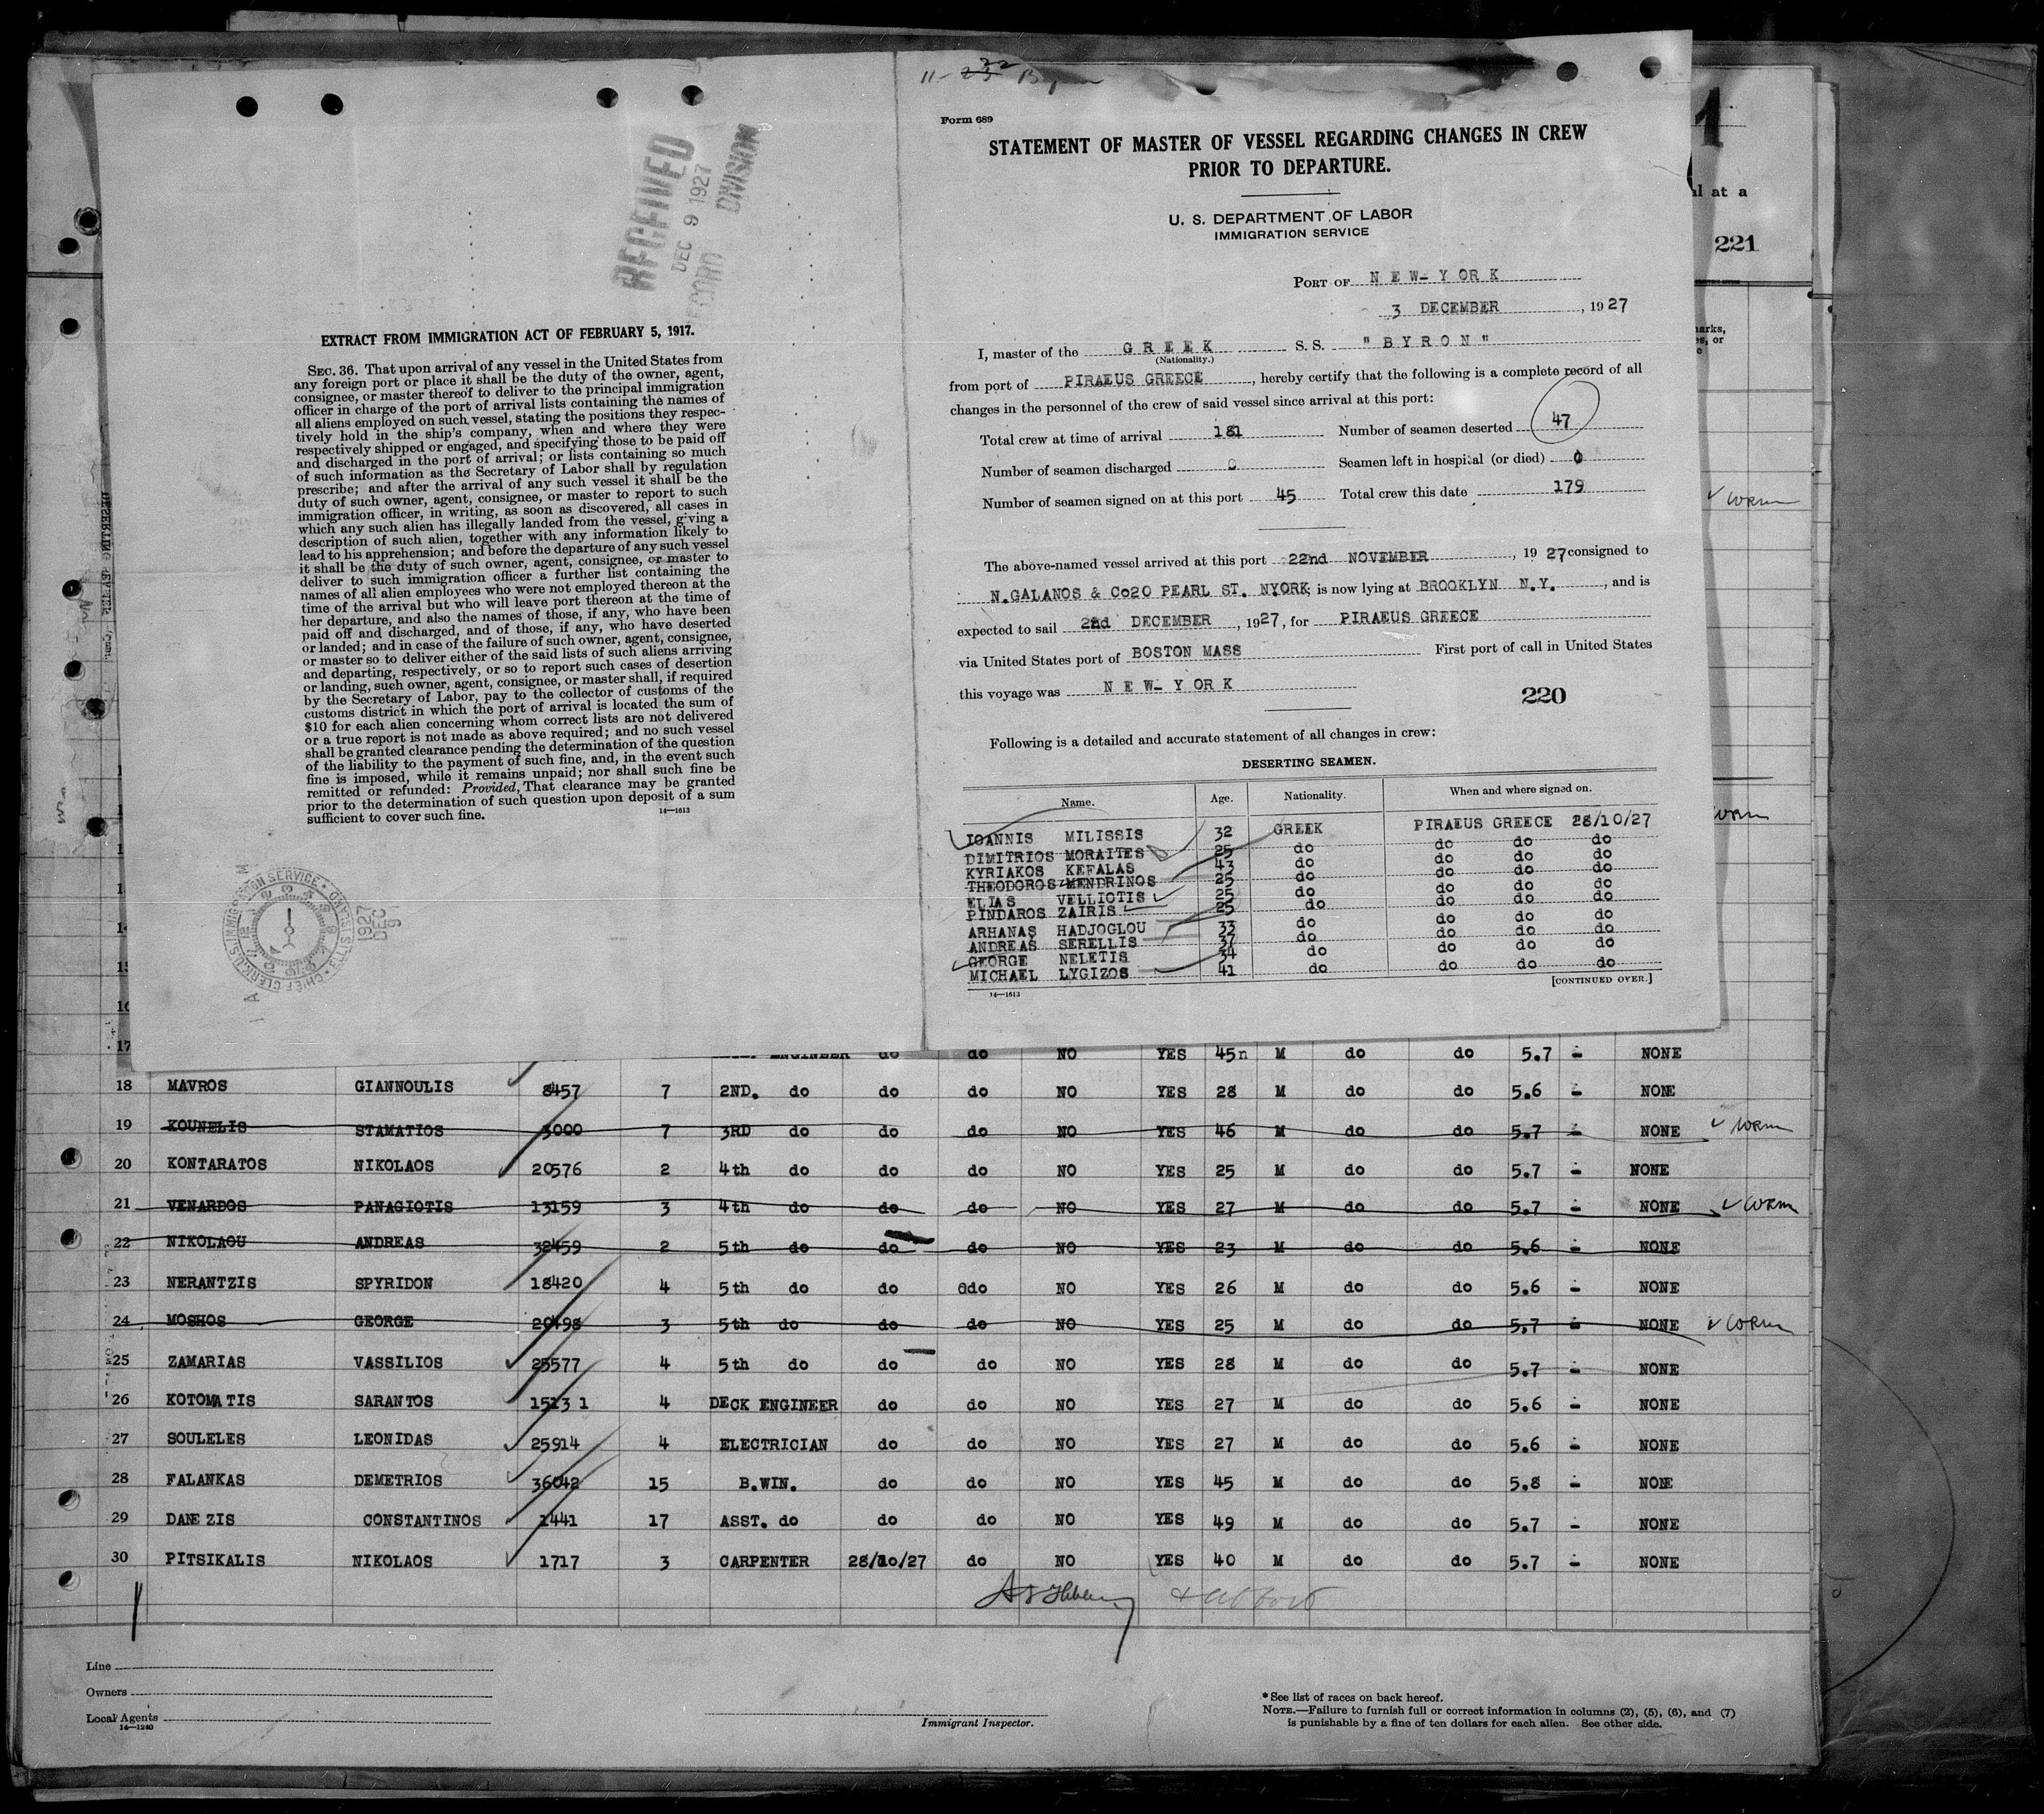 11-
Form 689
STATEMENT OF MASTER OF VESSEL REGARDING CHANGES IN CREW
PRIOR TO DEPARTURE.
U. S. DEPARTMENT OF LABOR
IMMIGRATION SERVICE
PORT OF NEW-YORK
3 DECEMBER, 1927
I, master of the GREEK S. S. "BYRON"
(Nationality.)
from port of PIRAEUS GREECE, hereby certify that the following is a complete record of all
changes in the personnel of the crew of said vessel since arrival at this port:
Total crew at time of arrival 181 Number of seamen deserted 47
Number of seamen discharged 0 Seamen left in hospital (or died) 0
Number of seamen signed on at this port 45 Total crew this date 179
The above-named vessel arrived at this port 22nd NOVEMBER, 1927 consigned to
N.GALANOS & Co20 PEARL ST. NYORK; is now lying at BROOKLYN N.Y., and is
expected to sail 2nd DECEMBER, 1927, for PIRAEUS GREECE
via United States port of BOSTON MASS First port of call in United States
this voyage was NEW-YORK
220
Following is a detailed and accurate statement of all changes in crew:
DESERTING SEAMEN.
Name. Age. Nationality. When and where signed on.
IOANNIS MILISSIS 32 GREEK PIRAEUS GREECE 28/10/27
DIMITRIOS MORAITES 25 do do do do
KYRIAKOS KEFALAS 43 do do do do
THEODOROS MENDRINOS 25 do do do do
ELIAS VELLIOTIS 25 do do do do
PINDAROS ZAIRIS 25 do do do do
ARHANAS HADJOGLOU 33 do do do do
ANDREAS SERELLIS 37 do do do do
GEORGE NELETIS 34 do do do do
MICHAEL LYGIZOS 41 do do do do
14—1613
[CONTINUED OVER.]
RECEIVED
DEC 9 1927
DIVISION
EXTRACT FROM IMMIGRATION ACT OF FEBRUARY 5, 1917.
SEC. 36. That upon arrival of any vessel in the United States from
any foreign port or place it shall be the duty of the owner, agent,
consignee, or master thereof to deliver to the principal immigration
officer in charge of the port of arrival lists containing the names of
all aliens employed on such vessel, stating the positions they respec-
tively hold in the ship's company, when and where they were
respectively shipped or engaged, and specifying those to be paid off
and discharged in the port of arrival; or lists containing so much
of such information as the Secretary of Labor shall by regulation
prescribe; and after the arrival of any such vessel it shall be the
duty of such owner, agent, consignee, or master to report to such
immigration officer, in writing, as soon as discovered, all cases in
which any such alien has illegally landed from the vessel, giving a
description of such alien, together with any information likely to
lead to his apprehension; and before the departure of any such vessel
it shall be the duty of such owner, agent, consignee, or master to
deliver to such immigration officer a further list containing the
names of all alien employees who were not employed thereon at the
time of the arrival but who will leave port thereon at the time of
her departure, and also the names of those, if any, who have been
paid off and discharged, and of those, if any, who have deserted
or landed; and in case of the failure of such owner, agent, consignee,
or master so to deliver either of the said lists of such aliens arriving
and departing, respectively, or so to report such cases of desertion
or landing, such owner, agent, consignee, or master shall, if required
by the Secretary of Labor, pay to the collector of customs of the
customs district in which the port of arrival is located the sum of
$10 for each alien concerning whom correct lists are not delivered
or a true report is not made as above required; and no such vessel
shall be granted clearance pending the determination of the question
of the liability to the payment of such fine, and, in the event such
fine is imposed, while it remains unpaid; nor shall such fine be
remitted or refunded: Provided, That clearance may be granted
prior to the determination of such question upon deposit of a sum
sufficient to cover such fine.
14—1613
1
al at a
221
17 ENGINEER do do NO YES 45 M do do 5.7 - NONE
18 MAVROS GIANNOULIS 8457 7 2ND. do do do NO YES 28 M do do 5.6 - NONE
19 KOUNELIS STAMATIOS 3000 7 3RD do do do NO YES 46 M do do 5.7 - NONE
20 KONTARATOS NIKOLAOS 20576 2 4th do do do NO YES 25 M do do 5.7 - NONE
21 VENARDOS PANAGIOTIS 13159 3 4th do do do NO YES 27 M do do 5.7 - NONE
22 NIKOLAOU ANDREAS 32459 2 5th do do do NO YES 23 M do do 5.6 - NONE
23 NERANTZIS SPYRIDON 18420 4 5th do do do NO YES 26 M do do 5.6 - NONE
24 MOSHOS GEORGE 20498 3 5th do do do NO YES 25 M do do 5.7 - NONE
25 ZAMARIAS VASSILIOS 25577 4 5th do do do NO YES 28 M do do 5.7 - NONE
26 KOTOMATIS SARANTOS 15131 4 DECK ENGINEER do do NO YES 27 M do do 5.6 - NONE
27 SOULELES LEONIDAS 25914 4 ELECTRICIAN do do NO YES 27 M do do 5.6 - NONE
28 FALANKAS DEMETRIOS 36042 15 B.WIN. do do NO YES 45 M do do 5.8 - NONE
29 DANEZIS CONSTANTINOS 1441 17 ASST. do do do NO YES 49 M do do 5.7 - NONE
30 PITSIKALIS NIKOLAOS 1717 3 CARPENTER 28/10/27 do NO YES 40 M do do 5.7 - NONE
Line
Owners
Local Agents
14—1240
Immigrant Inspector.
* See list of races on back hereof.
NOTE.—Failure to furnish full or correct information in columns (2), (5), (6), and (7)
is punishable by a fine of ten dollars for each alien. See other side.